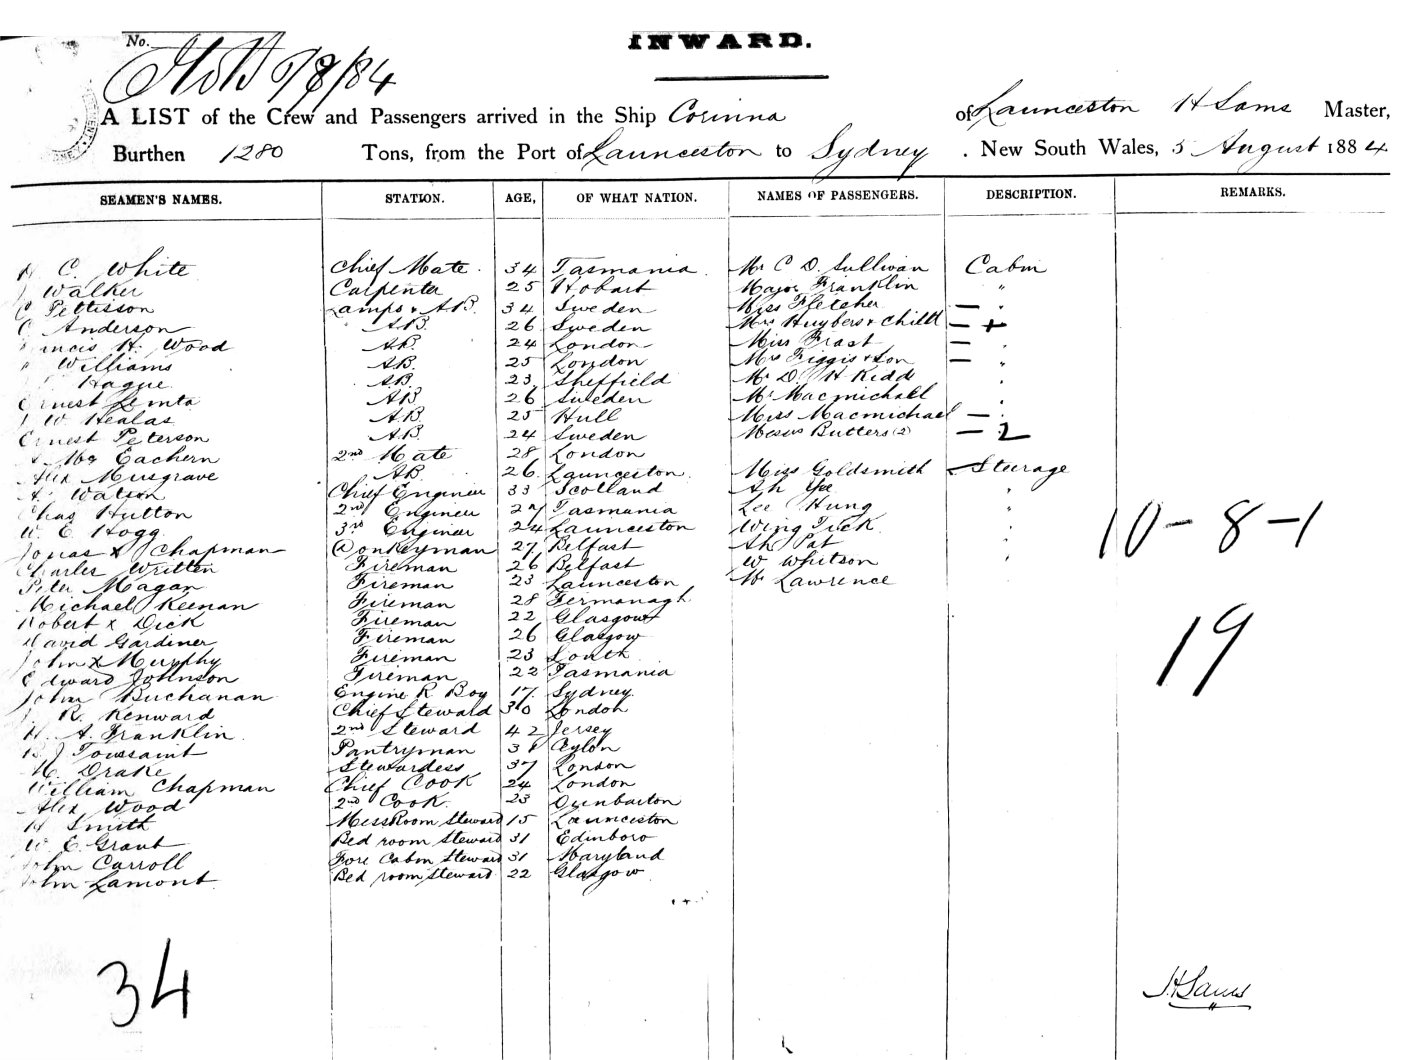 No.
INWARD.
5/8/84
A LIST of the Crew and Passengers arrived in the Ship Corinna of Launceston H Sams Master,
Burthen 1280 Tons, from the Port of Launceston to Sydney . New South Wales, 5 August 1884
SEAMEN'S NAMES. STATION. AGE, OF WHAT NATION. NAMES OF PASSENGERS. DESCRIPTION. REMARKS.
C. White Chief Mate. 34 Tasmania. Mr C D. Sullivan Cabin
Walker Carpenter 25 Hobart Major Franklin "
C Pettisson Lamps & AB. 34 Sweden Miss Fletcher — "
C. Anderson AB. 26 Sweden Mrs Huybers & Child — +
Francis H. Wood AB. 24 London Miss Frast —
Williams AB. 25 London Mrs Figgis & Son — "
Hague AB 23 Sheffield Mr D. H Kidd "
Ernest AB 26 Sweden Mr Macmichael
W Healas AB 25 Hull Miss Macmichael — "
Ernest Peterson AB. 24 Sweden Messrs Butters (2) — 2
Mc Eachern 2nd Mate 28 London
Alex Musgrave AB. 26. Launceston. Miss Goldsmith — Steerage
A. Watson Chief Engineer 33 Scotland Ah Yee "
Chas Hutton 2nd Engineer 27 Tasmania Lee Hung "
W. E. Hogg. 3rd Engineer 24 Launceston Wing Tick "
Jonas x Chapman Donkeyman 27 Belfast Ah Pat "
Charles Written Fireman 26 Belfast W Whitson "
Peter Magan Fireman 23 Launceston Mr Lawrence
Michael Keenan Fireman 28 Fermanagh
Robert x Dick Fireman 22 Glasgow
David Gardiner Fireman 26 Glasgow
John x Murphy Fireman 23 Louth
Edward Johnson Fireman 22 Tasmania
John Buchanan Engine R Boy 17. Sydney.
R. Kenward Chief Steward 30 London
H. A. Franklin. 2nd Steward 42 Jersey
J Toussaint Pantryman 31 Ceylon
M. Drake Stewardess 37 London
William Chapman Chief Cook 24 London
Alex Wood 2nd Cook. 23 Dunbarton
H Smith MessRoom Steward 15 Launceston
W. E. Grant Bed room Steward 31 Edinboro
John Carroll Fore Cabin Steward 31 Maryland
John Lamont Bed room Steward 22 Glasgow
10-8-1
19
34
H Sams